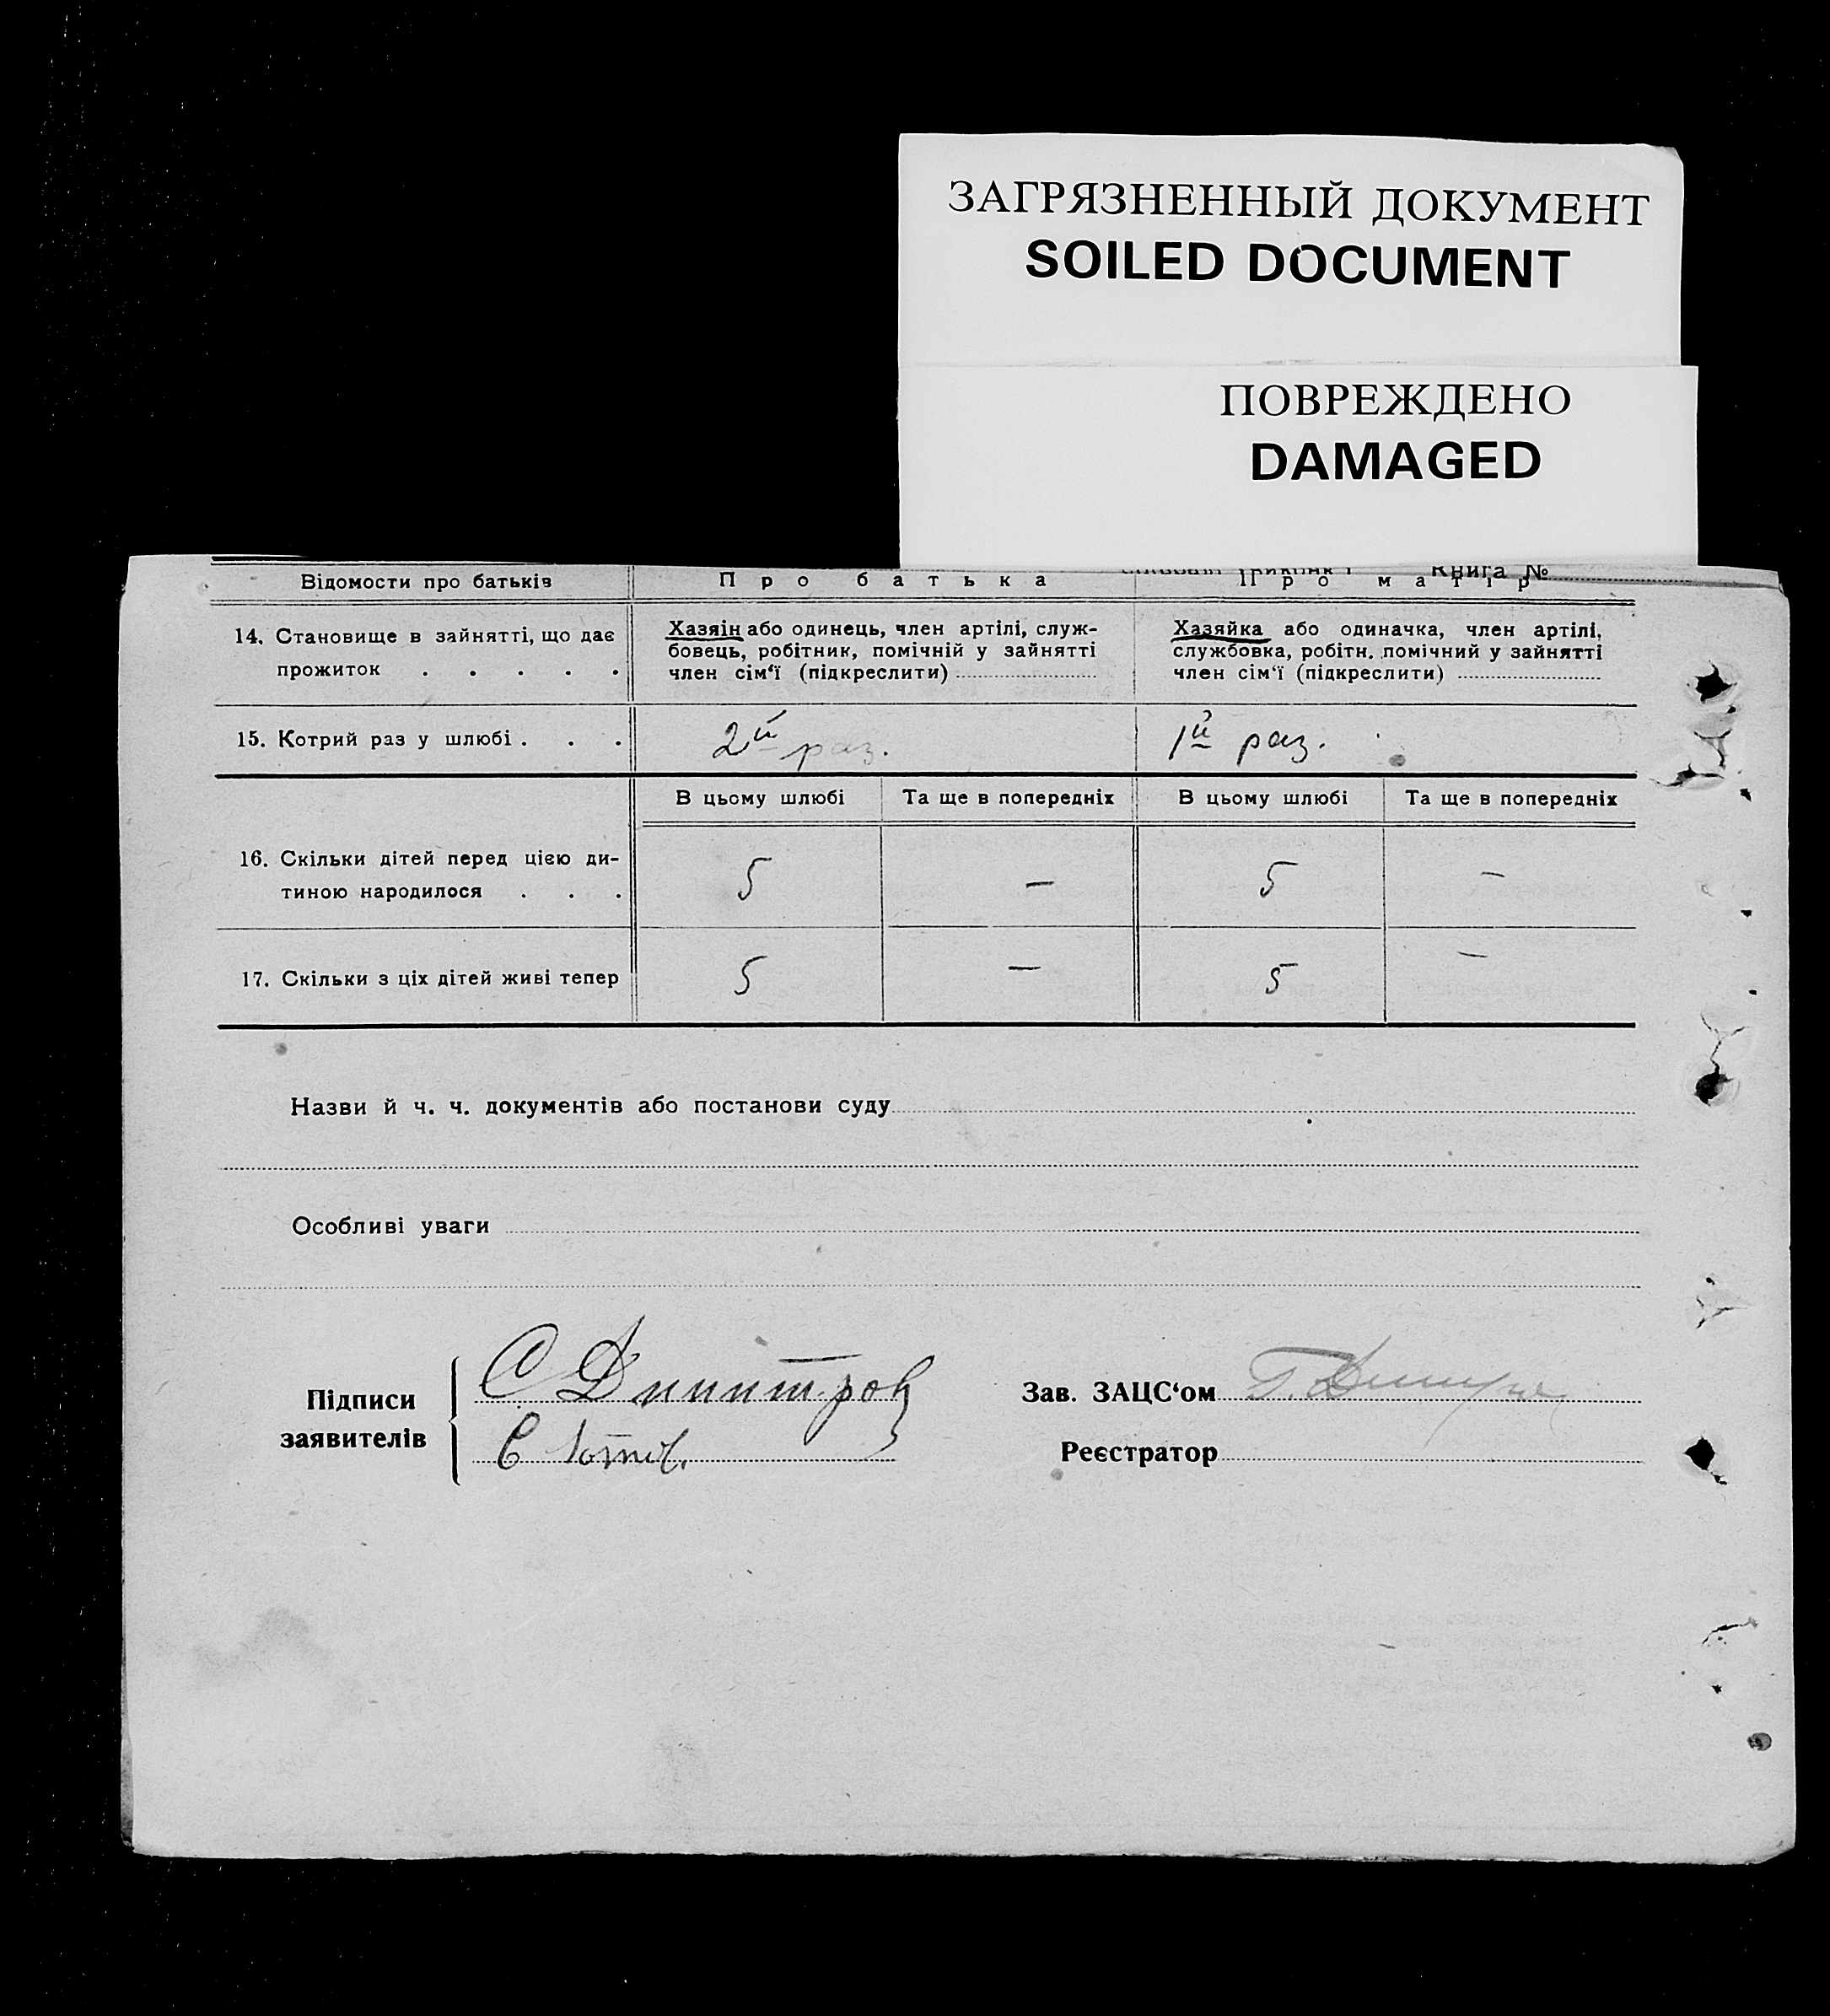 ЗАГРЯЗНЕННЫЙ ДОКУМЕНТ
SOILED DOCUMENT
ПОВРЕЖДЕНО
DAMAGED
Книга №
Відомости про батьків Про батька Про матір
14. Становище в зайнятті, що дає прожиток . . . . .
Хазяін або одинець, член артілі, служ-
бовець, робітник, помічній у зайнятті
член сім‘ї (підкреслити)
Хазяйка або одиначка, член артілі,
службовка, робітн. помічний у зайнятті
член сім‘ї (підкреслити)
15. Котрий раз у шлюбі . . . 2й раз. 1й раз.
В цьому шлюбі Та ще в попередніх В цьому шлюбі Та ще в попередніх
16. Скільки дітей перед цією ди-
тиною народилося . . . 5 — 5 —
17. Скільки з ціх дітей живі тепер 5 — 5 —
Назви й ч. ч. документів або постанови суду
Особливі уваги
Підписи
заявителів
С Димитров
Зав. ЗАЦС‘ом
Реєстратор